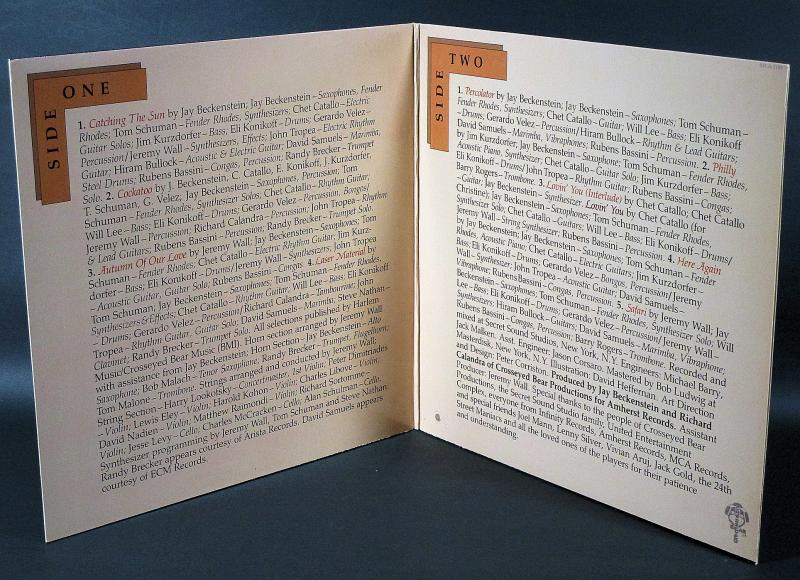 SIDE ONE
1. Catching The Sun by Jay Beckenstein; Jay Beckenstein – Saxophones, Fender
Rhodes; Tom Schuman – Fender Rhodes, Synthesizers; Chet Catallo – Electric
Guitar Solos; Jim Kurzdorfer – Bass; Eli Konikoff – Drums; Gerardo Velez –
Percussion/Jeremy Wall – Synthesizers, Effects; John Tropea – Electric Rhythm
Guitar; Hiram Bullock – Acoustic & Electric Guitar; David Samuels – Marimba,
Steel Drums; Rubens Bassini – Congas, Percussion; Randy Brecker – Trumpet
Solo. 2. Cockatoo by J. Beckenstein, C. Catallo, E. Konikoff, J. Kurzdorfer,
T. Schuman, G. Velez; Jay Beckenstein – Saxophones, Percussion; Tom
Schuman – Fender Rhodes, Synthesizer Solos; Chet Catallo – Rhythm Guitar;
Will Lee – Bass; Eli Konikoff – Drums; Gerardo Velez – Percussion, Bongos/
Jeremy Wall – Percussion; Richard Calandra – Percussion; John Tropea – Rhythm
& Lead Guitars; Rubens Bassini – Percussion; Randy Brecker – Trumpet Solo.
3. Autumn Of Our Love by Jeremy Wall; Jay Beckenstein – Saxophones; Tom
Schuman – Fender Rhodes; Chet Catallo – Electric Rhythm Guitar; Jim Kurz-
dorfer – Bass; Eli Konikoff – Drums/Jeremy Wall – Synthesizers; John Tropea
– Acoustic Guitar, Guitar Solo; Rubens Bassini – Congas. 4. Laser Material by
Tom Schuman; Jay Beckenstein – Saxophones; Tom Schuman – Fender Rhodes,
Synthesizers & Effects; Chet Catallo – Rhythm Guitar; Will Lee – Bass; Eli Konikoff
– Drums; Gerardo Velez – Percussion/Richard Calandra – Tambourine; John
Tropea – Rhythm Guitar, Guitar Solo; David Samuels – Marimba; Steve Nathan –
Clavinet; Randy Brecker – Trumpet Solo. All selections published by Harlem
Music/Crosseyed Bear Music (BMI). Horn section arranged by Jeremy Wall
with assistance from Jay Beckenstein; Horn Section – Jay Beckenstein – Alto
Saxophone; Bob Malach – Tenor Saxophone; Randy Brecker – Trumpet, Fluglehorn;
Tom Malone – Trombone. Strings arranged and conducted by Jeremy Wall;
String Section – Harry Lookofsky – Concertmaster, 1st Violin; Peter Dimitriades
– Violin; Lewis Eley – Violin; Harold Kohon – Violin; Charles Libove – Violin;
David Nadien – Violin; Matthew Raimondi – Violin; Richard Sortomme –
Violin; Jesse Levy – Cello; Charles McCracken – Cello; Alan Schulman – Cello.
Synthesizer programming by Jeremy Wall, Tom Schuman and Steve Nathan.
Randy Brecker appears courtesy of Arista Records. David Samuels appears
courtesy of ECM Records.
SIDE TWO
1. Percolator by Jay Beckenstein; Jay Beckenstein – Saxophones; Tom Schuman –
Fender Rhodes, Synthesizers; Chet Catallo – Guitar; Will Lee – Bass; Eli Konikoff
– Drums; Gerardo Velez – Percussion/Hiram Bullock – Rhythm & Lead Guitars;
David Samuels – Marimba, Vibraphones; Rubens Bassini – Percussion. 2. Philly
by Jim Kurzdorfer; Jay Beckenstein – Saxophone; Tom Schuman – Fender Rhodes,
Acoustic Piano, Synthesizer; Chet Catallo – Guitar Solo; Jim Kurzdorfer – Bass;
Eli Konikoff – Drums/John Tropea – Rhythm Guitar; Rubens Bassini – Congas;
Barry Rogers – Trombone. 3. Lovin' You (Interlude) by Chet Catallo; Chet Catallo
– Guitar; Jay Beckenstein – Synthesizer. Lovin' You by Chet Catallo (for
Christine); Jay Beckenstein – Saxophones; Tom Schuman – Fender Rhodes,
Synthesizer Solo; Chet Catallo – Guitars; Will Lee – Bass; Eli Konikoff – Drums/
Jeremy Wall – String Synthesizer; Rubens Bassini – Percussion. 4. Here Again
by Jay Beckenstein; Jay Beckenstein – Saxophones; Tom Schuman – Fender
Rhodes, Acoustic Piano; Chet Catallo – Electric Guitars; Jim Kurzdorfer –
Bass; Eli Konikoff – Drums; Gerardo Velez – Bongos, Percussion/Jeremy
Wall – Synthesizer; John Tropea – Acoustic Guitar; David Samuels –
Vibraphone; Rubens Bassini – Congas, Percussion. 5. Safari by Jeremy Wall; Jay
Beckenstein – Saxophones; Tom Schuman – Fender Rhodes, Synthesizer Solo; Will
Lee – Bass; Eli Konikoff – Drums; Gerardo Velez – Percussion/Jeremy Wall –
Synthesizers; Hiram Bullock – Guitars; David Samuels – Marimba, Vibraphone;
Rubens Bassini – Congas, Percussion; Barry Rogers – Trombone. Recorded and
mixed at Secret Sound Studios, New York, N.Y. Engineers: Michael Barry,
Jack Malken. Asst. Engineer: Jason Corsaro. Mastered by Bob Ludwig at
Masterdisk, New York, N.Y. Illustration: David Heffernan. Art Direction
and Design: Peter Corriston. Produced by Jay Beckenstein and Richard
Calandra of Crosseyed Bear Productions for Amherst Records. Assistant
Producer: Jeremy Wall. Special thanks to the people of Crosseyed Bear
Productions, the Secret Sound Studio family, United Entertainment
Complex, everyone from Infinity Records, Amherst Records, MCA Records,
and special friends Joel Mann, Lenny Silver, Vivian Aruj, Jack Gold, the 24th
Street Maniacs and all the loved ones of the players for their patience
and understanding.